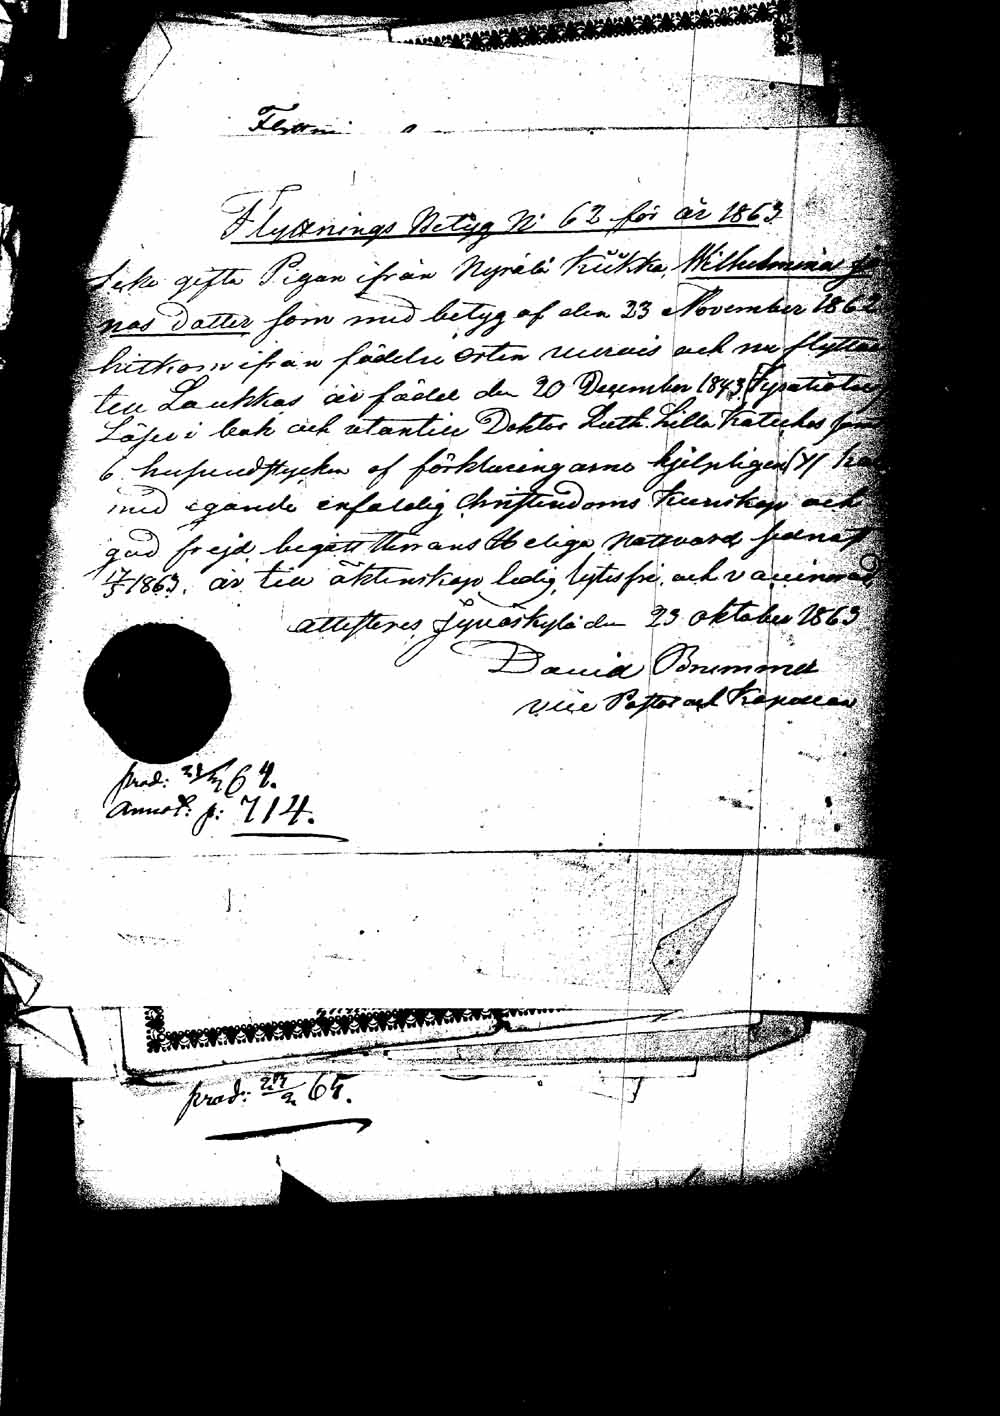 Flyttnings Betyg N 62 för år 1863
Icke gifta Pigan ifrån Nyrölä Kukka, Wilhelmina Jo
nas dotter som med betyg af den 23 November 1862
hitkom ifrån födelse orten och nu flyttar
till Laukkas är född den 20 December 1843
Läser i bok och utantill Doktor Luth. Lilla Kateches samt
6 hufvudstycken af förklaringarne hjelpligen
med egande enfaldig Christendoms kunskap och
god frejd begått Herrans Heliga Nattvard sednast
17/5 1863. är till äktenskap ledig, lytesfri och vaccinerad,
attesteres Jyväskylä den 23 oktober 1863
David Brummer
vice Pastor och Kapellan
prod: 64.
Annot: p: 714.
prod: 65.